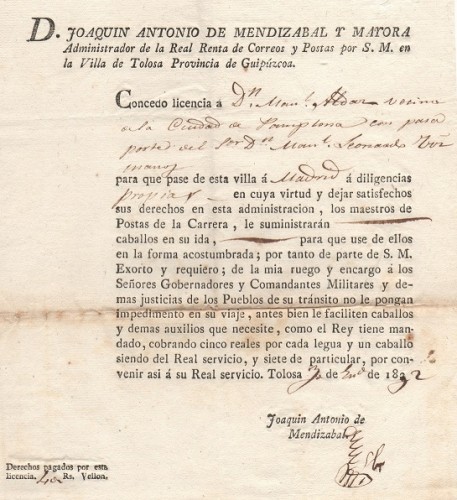 D. JOAQUIN ANTONIO DE MENDIZABAL Y MAYORA
Administrador de la Real Renta de Correos y Postas por S. M. en
la Villa de Tolosa Provincia de Guipúzcoa.
Concedo licencia á Dn. Manl. Aldaz vecino
de la Ciudad de Pamplona con pasa
porte del Sor Dn. Manl.
para que pase de esta villa á Madrid á diligencias
propias en cuya virtud y dejar satisfechos
sus derechos en esta administracion, los maestros de
Postas de la Carrera, le suministrarán
caballos en su ida, para que use de ellos
en la forma acostumbrada; por tanto de parte de S. M.
Exorto y requiero; de la mia ruego y encargo á los
Señores Gobernadores y Comandantes Militares y de-
mas justicias de los Pueblos de su tránsito no le pongan
impedimento en su viaje, antes bien le faciliten caballos
y demas auxilios que necesite, como el Rey tiene man-
dado, cobrando cinco reales por cada legua y un caballo
siendo del Real servicio, y siete de particular, por con-
venir asi á su Real servicio. Tolosa de de 18
Joaquin Antonio de
Mendizabal
Derechos pagados por esta
licencia, 40 Rs. Vellon.